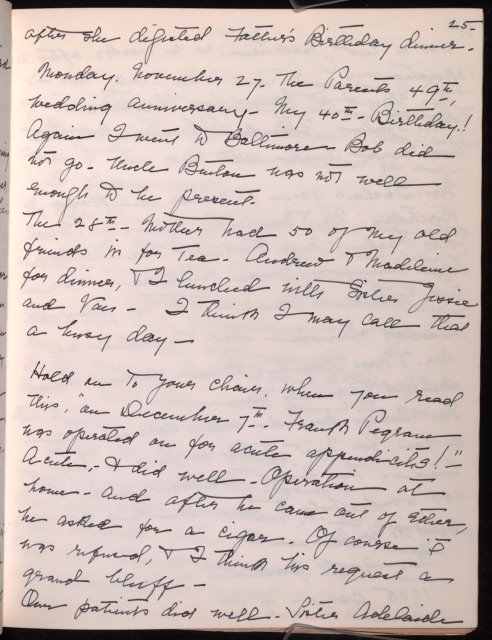 25-
after she digested Father's Birthday dinner.
Monday. November 27. The Parents 49th,
wedding anniversary - My 40th - Birthday!
Again I went to Baltimore Bob did
not go. Uncle Burton was not well
enough to be present.
The 28th - Mother had 50 of my old
friends in for Tea - Andrew & Madeline
for dinner, & I lunched with Sister Jessie
and Van - I think I may call that
a busy day -
Hold on to your chairs. when you read
this, "on December 7th. Frank Pegram
was operated on for acute appendicitis!" -
Acute, - & did well - Operation at
home - and after he came out of ether,
he asked for a cigar. Of course it
was refused, & I think his request a
grand bluff -
Our patients did well - Sister Adelaide